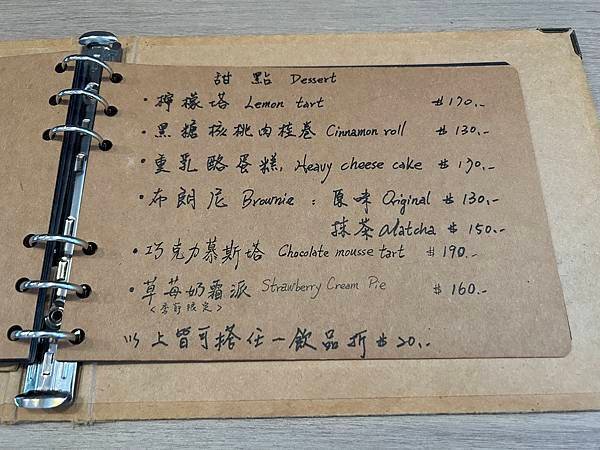 甜點 Dessert
・檸檬塔 Lemon tart $170.-
・黑糖核桃肉桂卷 Cinnamon roll $130.-
・重乳酪蛋糕. Heavy cheese cake $170.-
・布朗尼 Brownie : 原味 Original $130.-
抹茶 Matcha $150.-
・巧克力慕斯塔 Chocolate mousse tart $190.-
・草莓奶霜派 Strawberry Cream Pie $160.-
<季節限定>
以上皆可搭任一飲品折$20.-